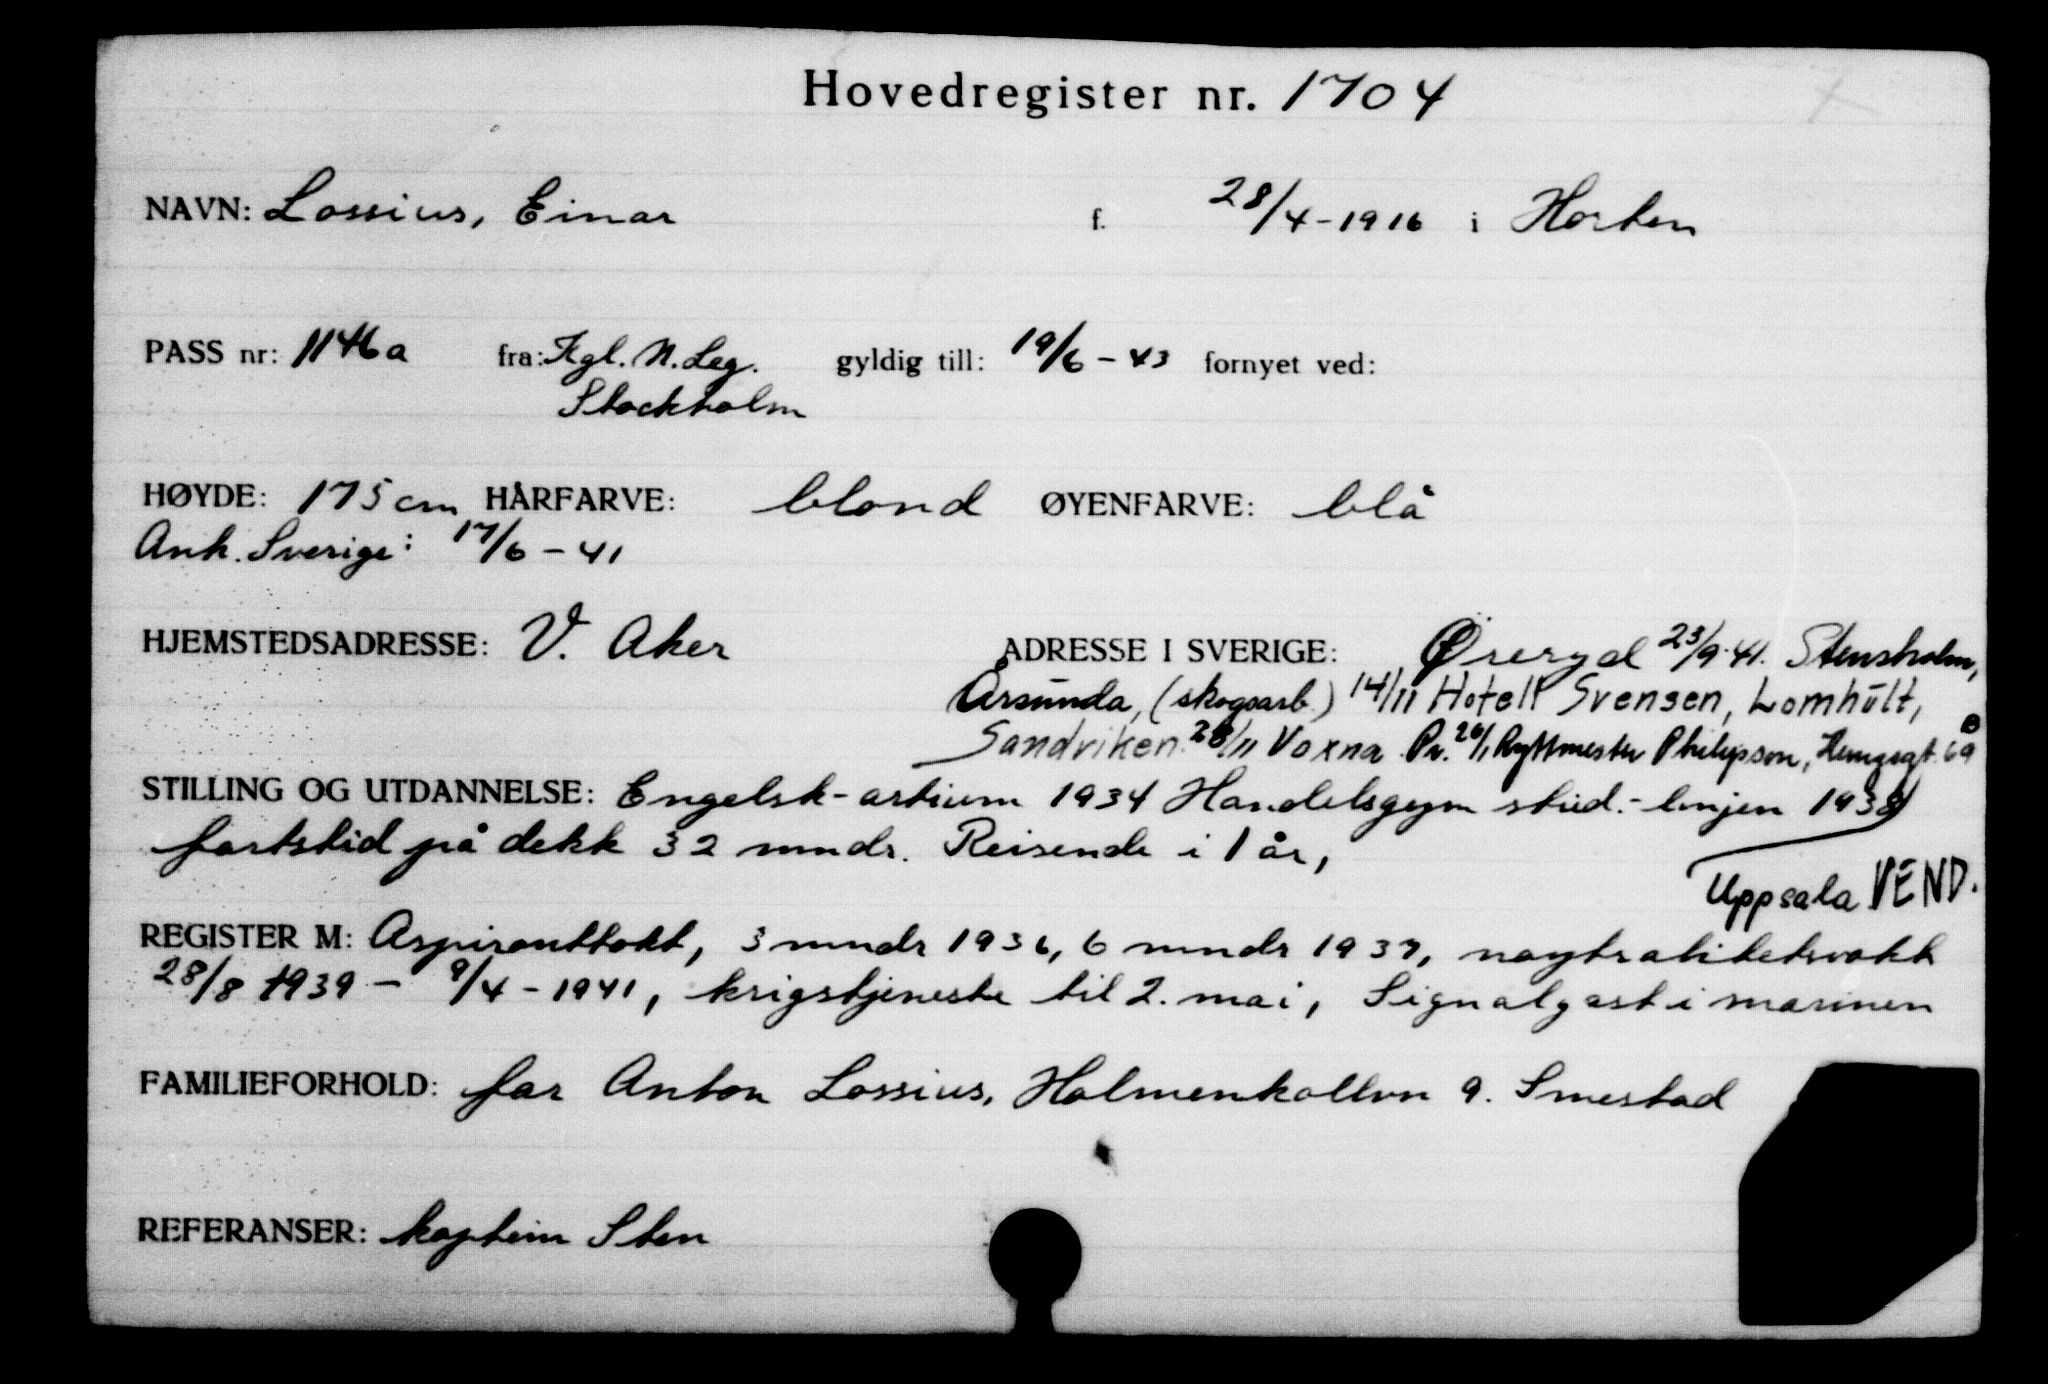 Hovedregister nr. 1704
NAVN: Lossius, Einar f. 28/4-1916 i Horten
PASS nr: 1146a fra: Kgl. N. Leg. gyldig till: 19/6-43 fornyet ved:
Stockholm
HØYDE: 175 cm HÅRFARVE: blond ØYENFARVE: blå
Ank. Sverige: 17/6-41
HJEMSTEDSADRESSE: V. Aker ADRESSE I SVERIGE: Øreryd 23/9-41. Stensholm,
Årsunda, (skogsarb.) 14/11 Hotell Svensen, Lomhült,
Sandviken. 28/11 Voxna Pr. 26/1 Ryttmester Philipson, 69 B
STILLING OG UTDANNELSE: Engelsk-artium 1934 Handelsgym stud.-linjen 1938
fartstid på dekk 32 mndr. Reisende i 1 år,
Uppsala VEND.
REGISTER M: Aspiranttokt, 3 mndr 1936, 6 mndr 1937, nøytralitetsvakt
28/8 1939 - 9/4-1941, krigstjeneste til 2. mai, Signalgast i marinen
FAMILIEFORHOLD: far Anton Lossius, Holmenkollvn 9. Smestad
REFERANSER: kaptein Sten